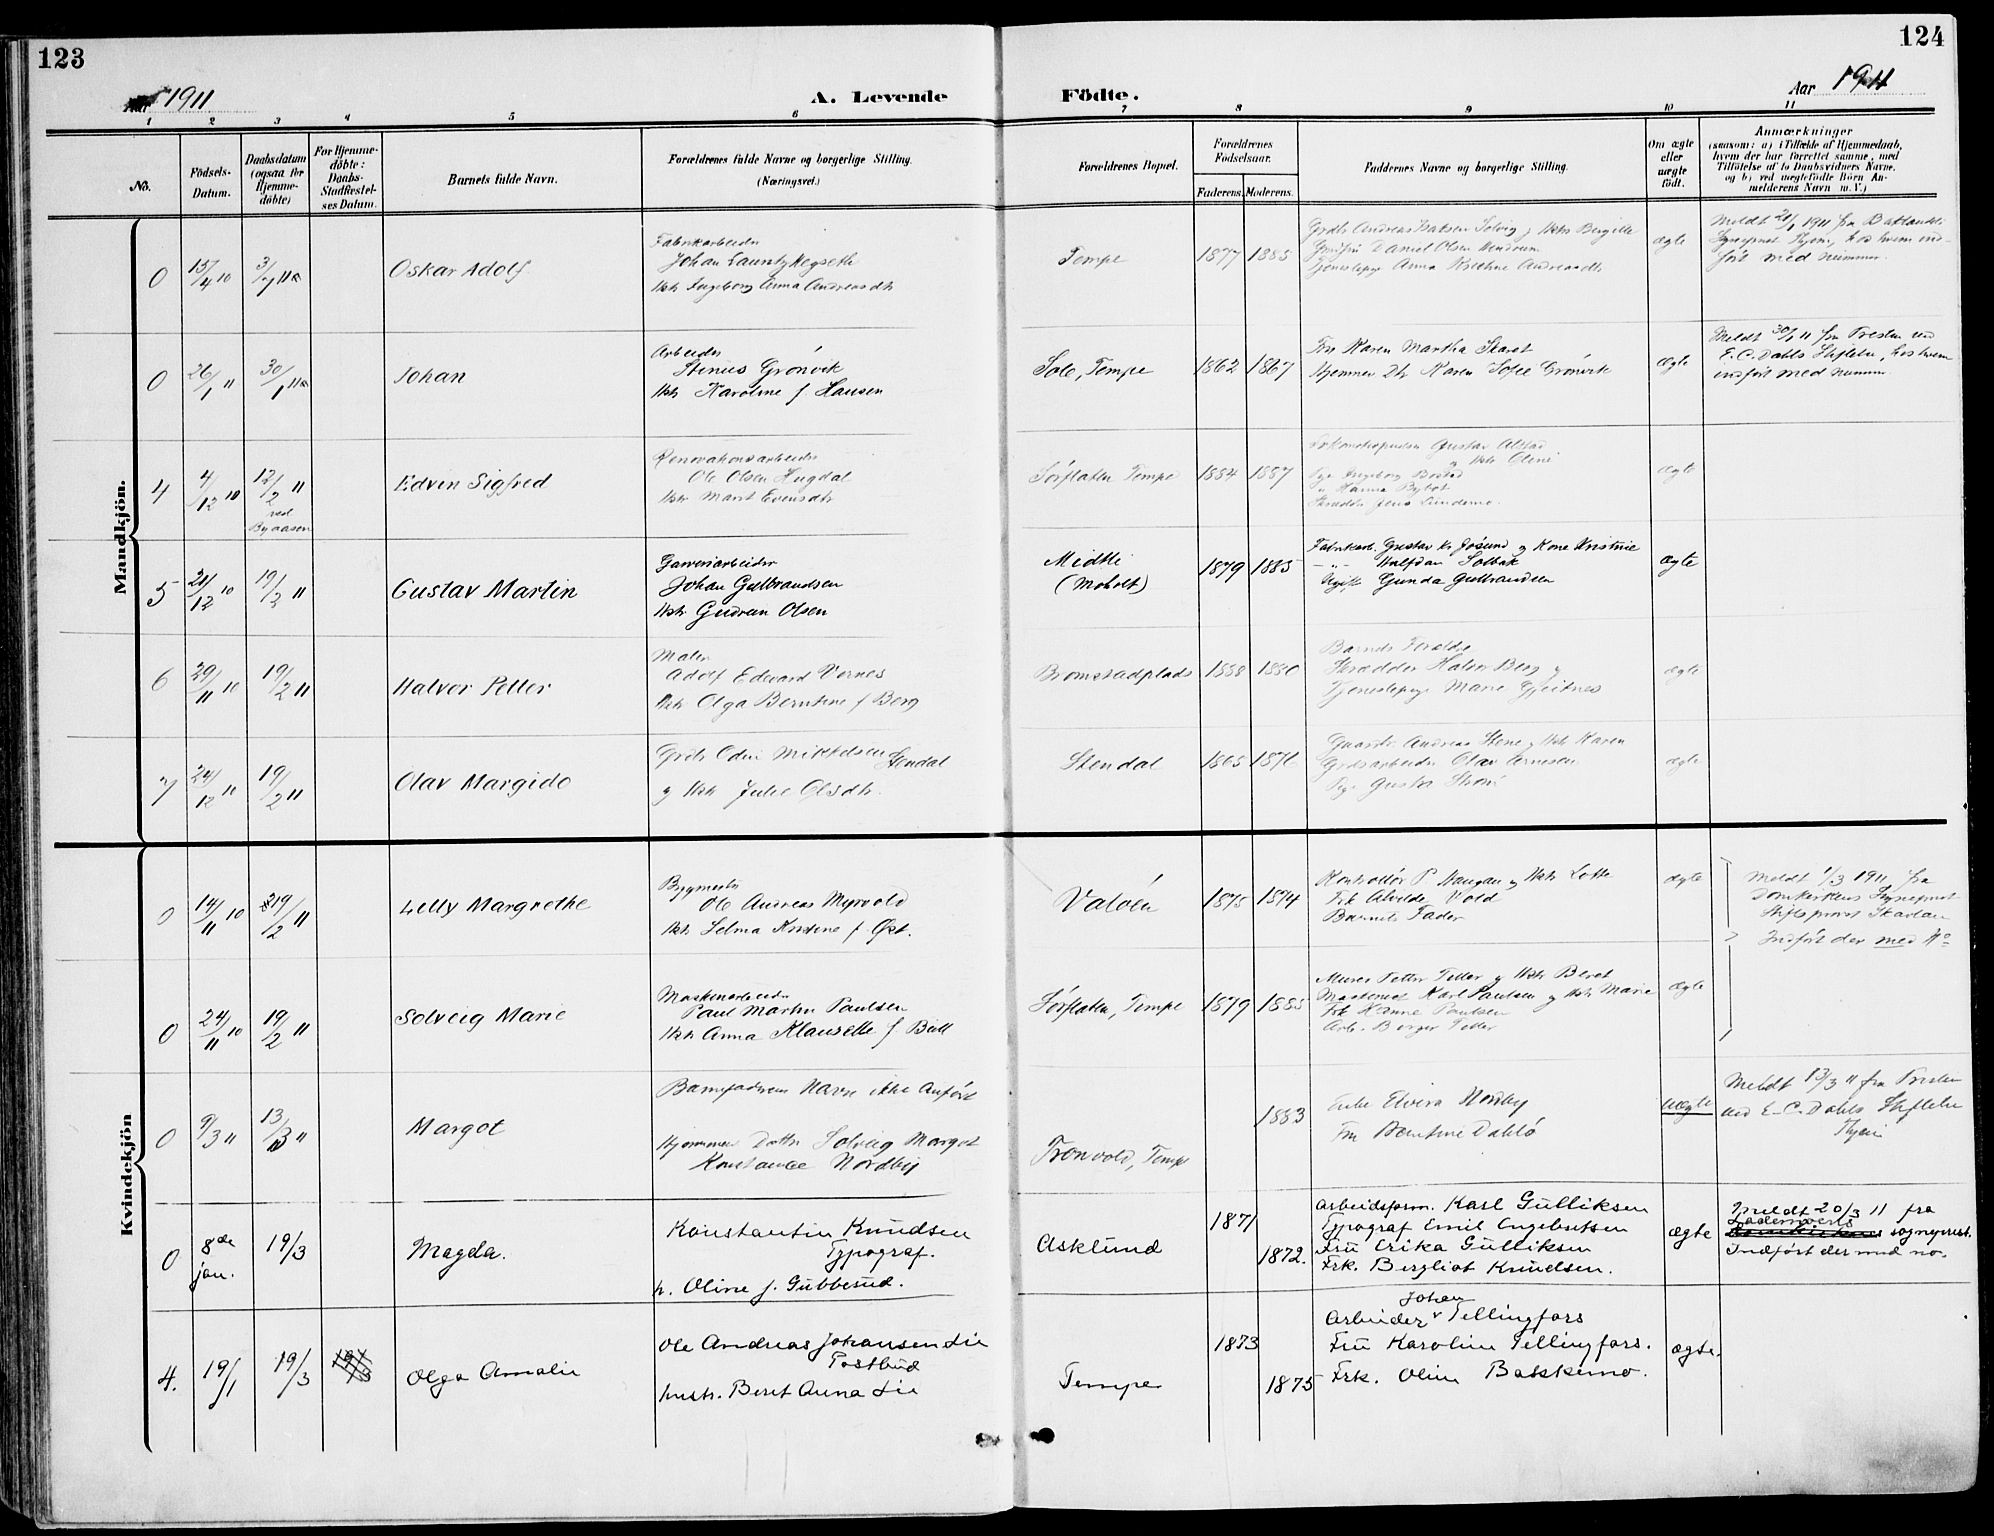 123
124
Aar 1911
A. Levende
Födte.
Aar 1911
1 2 3 4 5 6 7 8 9 10 11
No.
Födsels-
Datum.
Daabsdatum
(ogsaa for
Hjemme-
döbte)
For Hjemme-
döbte:
Daabs-
Stadfæstel-
ses Datum.
Barnets fulde Navn.
Forældrenes fulde Navne og borgerlige Stilling.
(Næringsvei.)
Forældrenes Bopæl.
Forældrenes
Födselsaar.
Faderens.
Moderens.
Faddernes Navne og borgerlige Stilling.
Om ægte
eller
uægte
födt.
Anmærkninger
(saasom: a) i Tilfælde af Hjemmedaab,
hvem der har forrettet samme, med
Tilföielse af to Daabsvidners Navne,
og b) ved uægtefödte Börn An-
melderens Navn m. V.)
Mandkjön.
0 15/4 10
Oskar Adolf
Fabrikarbeider
Johan Lauritz Hegseth
Hstr Ingeborg Anna Andreasdtr
Tempe
1877 1885
Grdbr Andreas Isaksen Solvig og Hstr Birgitte
Daniel Olsen
Tjenestepige Anna Andreasdtr
ægte
Meldt 1911 fra Baklandets
Sogneprest Thjem, hos hvem ind-
ført med nummer.
0 26/1 11 30/1 11
Johan
Arbeider
Stinius Grönvik
Hstr Karoline f. Hansen
Solb, Tempe
1862 1867
Fru Karen Martha Skaret
Hjemmev Dtr Karen Sofie Grönvik
ægte
Meldt 30/1 11 fra Presten ved
E. C. Dahls Stiftelse, hos hvem
indført med numm.
4 4/12 10 12/2 11
ved
Byaasen
Edvin Sigfred
Renovationsarbeider
Ole Olsen Hugdal
Hstr Marit Evensdtr
Sörflaten Tempe
1884 1887
Gustav Alstad
og Hstr Oline
Pige Ingeborg
" Hanna
Jens
ægte
5 21/12 10 19/2 11
Gustav Martin
Garveriarbeider
Johan Gulbrandsen
Hstr Gudrun Olsen
Midtli
(Moholt)
1879 1885
Fabrikarb. Gustav Kr Jösund og Kone Kristine
-"- Halfdan Solbak
Ugift Gunda Gulbrandsen
ægte
6 29/11 10 19/2 11
Halvor Petter
Maler
Adolf Edvard Vornes
Hstr Olga Berntine f Berg
Bromstadplads
1888 1880
Barnets Forældre
Skrædder Halvor Berg og
Tjenestepige Marie Gjeitnes
ægte
7 24/12 10 19/2 11
Olav Margido
Grdbr Odin Mikkelsen Stendal
og Hstr Julie Olsdtr.
Stendal
1865 1876
Gaardbr. Andreas Stene og Hstr Karen
Grdsarbeider Olav Arnesen
Pige Gusta
ægte
Kvindekjön
0 14/11 10 19/2 11
Lelly Margrethe
Bygmester
Ole Andreas Myrvold
Hstr Selma Kristine f. Øst.
Valöen
1875 1874
Kontrollör P. Haugan og Hstr Lotte
Frk Alvilde Vold
Barnets Fader
ægte
Meldt 1/3 1911 fra
Domkirkens Sogneprest
Stiftsprovst
Indført der med No
0 24/11 10 19/2 11
Solveig Marie
Maskinarbeider
Paul Martin Paulsen
Hstr Anna Klausette f. Bull
Sörflaten, Tempe
1879 1885
Murer Petter Teller og Hstr Beret
Maskinist Karl Paulsen og Hstr Marie
Frk Hanne Paulsen
Arb. Birger Teller
ægte
0 9/3 11 13/3 11
Margot
Barnefaderens Navn ikke anført
Hjemmev Datter Solveig Margot
Konstance Nordby
Tronvold, Tempe
1883
Enke Elvira Nordby
Fru Berntine Dahlö
uægte
Meldt 13/3 11 fra Presten
ved E. C. Dahls Stiftelse
Thjem
0 8de jan. 19/3
Magda.
Konstantin Knudsen
Typograf.
h. Oline f. Gubbesud.
Asklund
1871
1872.
Arbeidsform. Karl Gulliksen
Typograf Emil Engebretsen
Fru Erika Gulliksen
Frk. Bergliot Knudsen.
ægte
Meldt 20/3 11 fra
Lademoens
sogneprest.
Indført der med no.
4. 19/1 19/3
Olga Amalie
Ole Andreas Johansen Lie
Postbud
hustr. Beret Anna Lie
Tempe
1873
1875
Johan
Arbeider v Tellingfors
Fru Karoline Tellingfors.
Frk. Oline Bakkemo.
ægte.